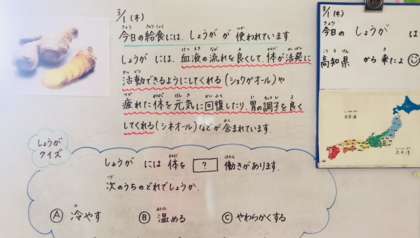 3/1(木)
今日の給食には、しょうが が 使われています
しょうが には、血液の流れを良くして、体が活発に
活動できるようにしてくれる(ショウガオール)や
疲れた体を元気に回復したり、胃の調子を良く
してくれる(シネオール)などが含まれています
しょうが
クイズ
しょうが には 体を ? 働きがあります。
次のうちのどれでしょうか。
Ⓐ 冷やす Ⓑ 温める Ⓒ やわらかくする
3/1(木)
今日の しょうが は
高知県 から 来たよ